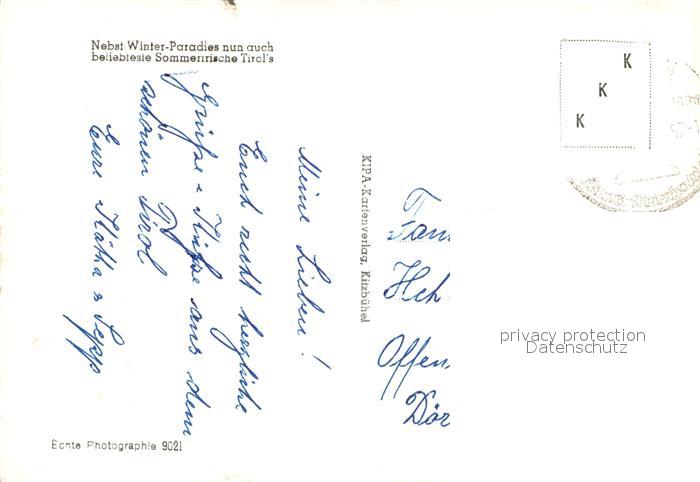 Nebst Winter-Paradies nun auch
beliebteste Sommerfrische Tirol's
Meine Lieben!
Euch recht herzliche
Grüße + Küsse aus dem
schönen Tirol
Eure Käthe u Sepp
Echte Photographie 9021
KIPA-Kartenverlag, Kitzbühel
K
K
K
Fam
Hch.
Offen
Dör
privacy protection
Datenschutz